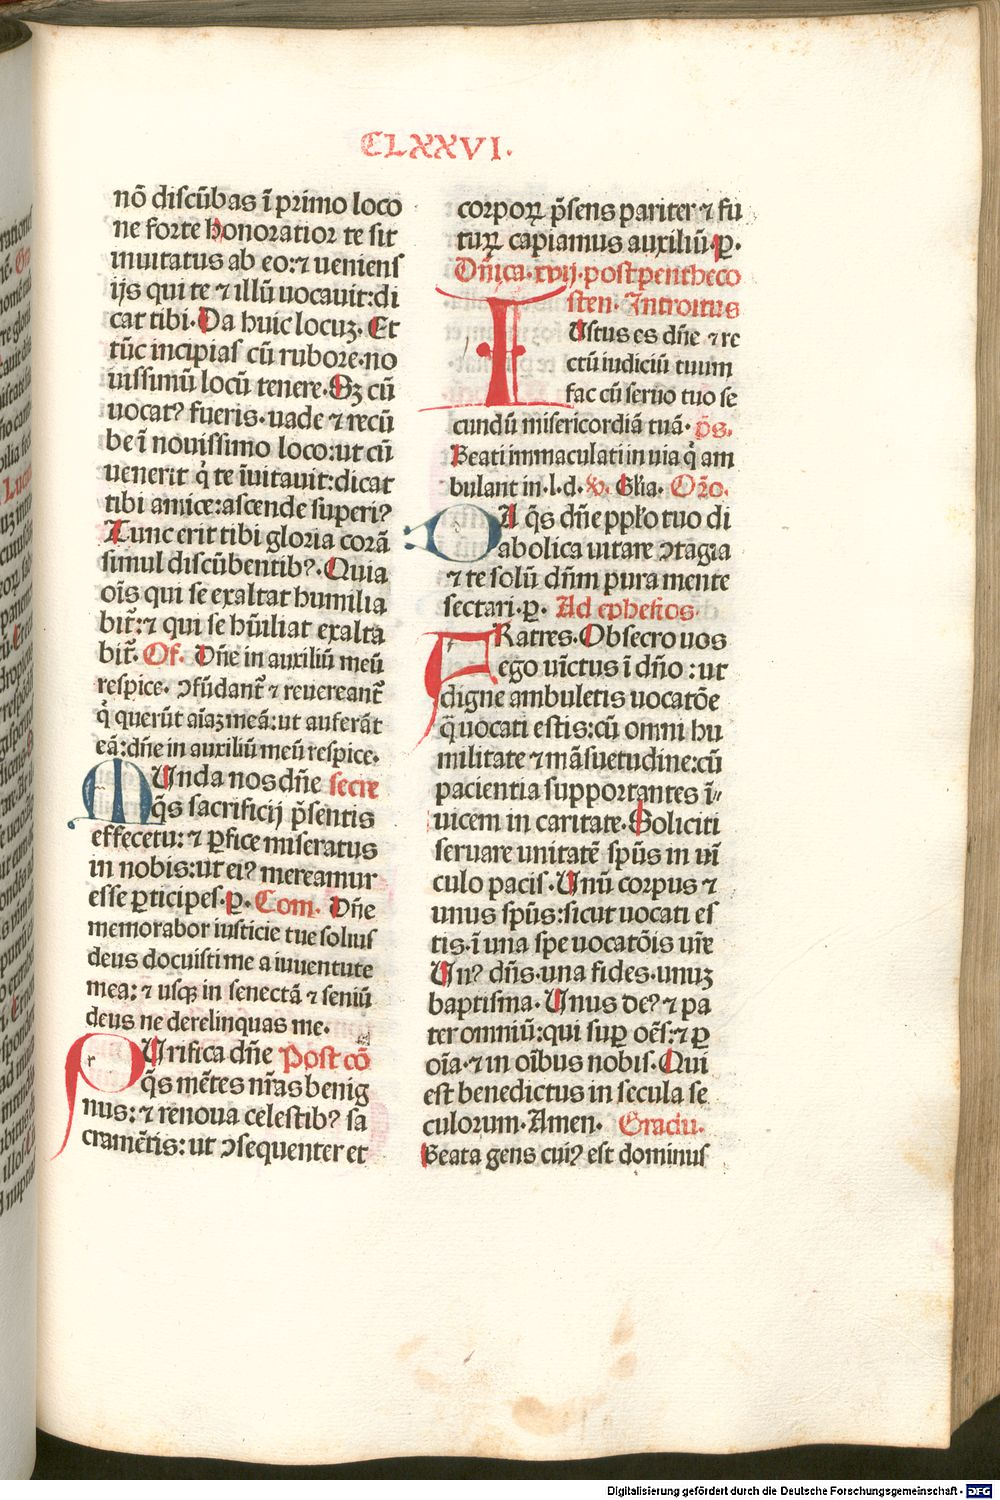 CLXXVI.
nō discūbas ī primo loco
ne forte honoratior te sit
inuitatus ab eo: ⁊ ueniens
ijs qui te ⁊ illū uocauit: di
cat tibi. Da huic locuꝫ. Et
tūc incipias cū rubore. no
uissimū locū tenere. Sꝫ cū
uocatꝰ fueris. uade ⁊ recū
be ī nouissimo loco: ut cū
uenerit q̇ te īuitauit: dicat
tibi amice: ascende superiꝰ
Tunc erit tibi gloria corā
simul discūbentibꝰ. Quia
oīs qui se exaltat humilia
bit̄: ⁊ qui se hūiliat exalta
bit̄. Of. Dñe in auxiliū meū
respice. ↄfūdant̄ ⁊ reuereant̄
q̇ querūt aīaꝫ meā: ut auferāt
eā: dñe in auxiliū meū respice.
MUnda nos dñe secre
q̄s sacrificij p̄sentis
effectu: ⁊ ꝑfice miseratus
in nobis: ut eiꝰ mereamur
esse ꝑticipes. p. Com. Dñe
memorabor iusticie tue solius
deus docuisti me a iuuentute
mea: ⁊ usqꝫ in senectā ⁊ seniū
deus ne derelinquas me.
PUrifica dñe Post cō
q̄s mētes nr̄as benig
nus: ⁊ renoua celestibꝰ sa
cramētis: ut ↄsequenter et
corpoꝝ p̄sens pariter ⁊ fu
tuꝝ capiamus auxiliū. p.
Dñica. xvij. post penthеco
sten. Introitus
IUstus es dñe ⁊ re
ctū iudiciū tuum
fac cū seruo tuo se
cundū misericordiā tuā. p̄s.
Beati immaculati in uia q̇ am
bulant in. l. d. ℣. Glia. Orō.
DA q̄s dñe pplo tuo di
abolica uitare ↄtagia
⁊ te solū dñm pura mente
sectari. p. Ad ephesios.
FRatres. Obsecro uos
ego uīctus ī dño: ut
digne ambuletis uocatōe
q̄ uocati estis: cū omni hu
militate ⁊ māsuetudine: cū
pacientia supportantes ī
uicem in caritate. Soliciti
seruare unitatē spūs in uī
culo pacis. Unū corpus ⁊
unus spūs: sicut uocati es
tis. ī una spe uocatōis ur̄e
Unꝰ dñs. una fides. unuꝫ
baptisma. Unus deꝰ ⁊ pa
ter omniū: qui suꝑ oēs: ⁊ ꝑ
oīa. ⁊ in oībus nobis. Qui
est benedictus in secula se
culorum. Amen. Gradu.
Beata gens cuiꝰ est dominus
Digitalisierung gefördert durch die Deutsche Forschungsgemeinschaft - DFG